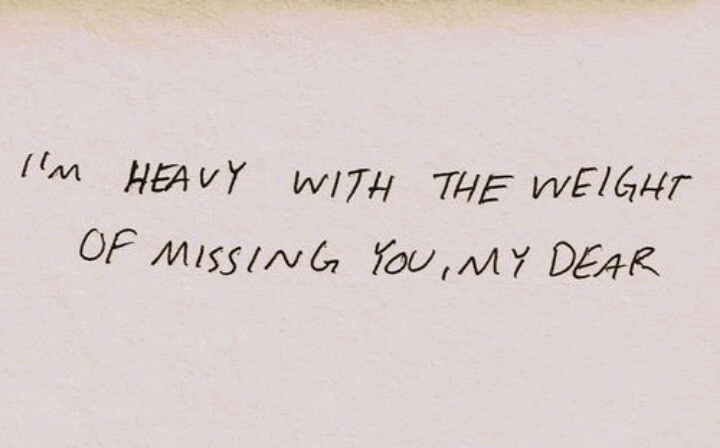 I'M HEAVY WITH THE WEIGHT
OF MISSING YOU, MY DEAR